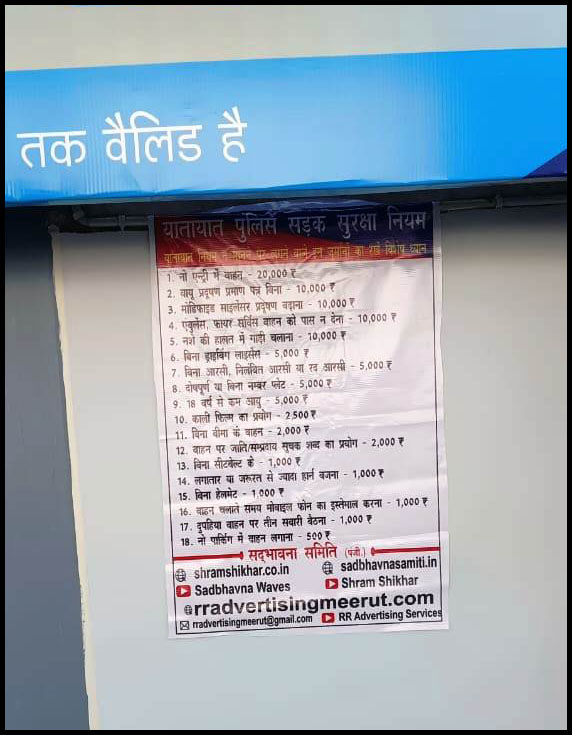 तक वैलिड है
यातायात पुलिस सड़क सुरक्षा नियम
यातायात नियम न मानने पर लगने वाले इन जुर्मानों का रखें विशेष ध्यान
1. नो एन्ट्री में वाहन - 20,000 ₹
2. वायु प्रदूषण प्रमाण पत्र बिना - 10,000 ₹
3. मोडिफाइड साइलेंसर प्रदूषण बढ़ाना - 10,000 ₹
4. एंबुलेंस, फायर सर्विस वाहन को पास न देना - 10,000 ₹
5. नशे की हालत में गाड़ी चलाना - 10,000 ₹
6. बिना ड्राइविंग लाइसेंस - 5,000 ₹
7. बिना आरसी, निलंबित आरसी या रद्द आरसी - 5,000 ₹
8. दोषपूर्ण या बिना नम्बर प्लेट - 5,000 ₹
9. 18 वर्ष से कम आयु - 5,000 ₹
10. काली फिल्म का प्रयोग - 2,500 ₹
11. बिना बीमा के वाहन - 2,000 ₹
12. वाहन पर जाति/सम्प्रदाय सूचक शब्द का प्रयोग - 2,000 ₹
13. बिना सीटबेल्ट के - 1,000 ₹
14. लगातार या जरूरत से ज्यादा हार्न बजना - 1,000 ₹
15. बिना हेलमेट - 1,000 ₹
16. वाहन चलाते समय मोबाइल फोन का इस्तेमाल करना - 1,000 ₹
17. दुपहिया वाहन पर तीन सवारी बैठना - 1,000 ₹
18. नो पार्किंग में वाहन लगाना - 500 ₹
सद्भावना समिति (पंजी.)
shramshikhar.co.in sadbhavnasamiti.in
Sadbhavna Waves Shram Shikhar
rradvertisingmeerut.com
rradvertisingmeerut@gmail.com RR Advertising Services